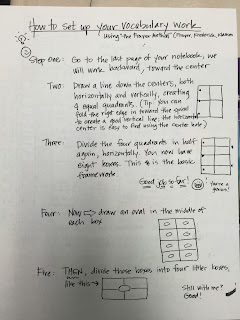 How to set up your vocabulary work
Using "the Frayer Method" (Frayer, Frederick, Klausm
Step One: Go to the last page of your notebook, we
will work backward, toward the center
Two: Draw a line down the centers, both
horizontally and vertically, creating
4 equal quadrants. (Tip: You can
fold the right edge in toward the gound
to create a good vertical line, the horizontal
center is easy to find using the center hole)
Three: Divide the four quadrants in half
again, horizontally. You now have
eight boxes. This is the basic
framework
Good job so far!
You're a
genius!
Four: Now ⇒ draw an oval in the middle of
each box
Five: THEN, divide those boxes into four littler boxes,
like this →
Still with me?
Good!